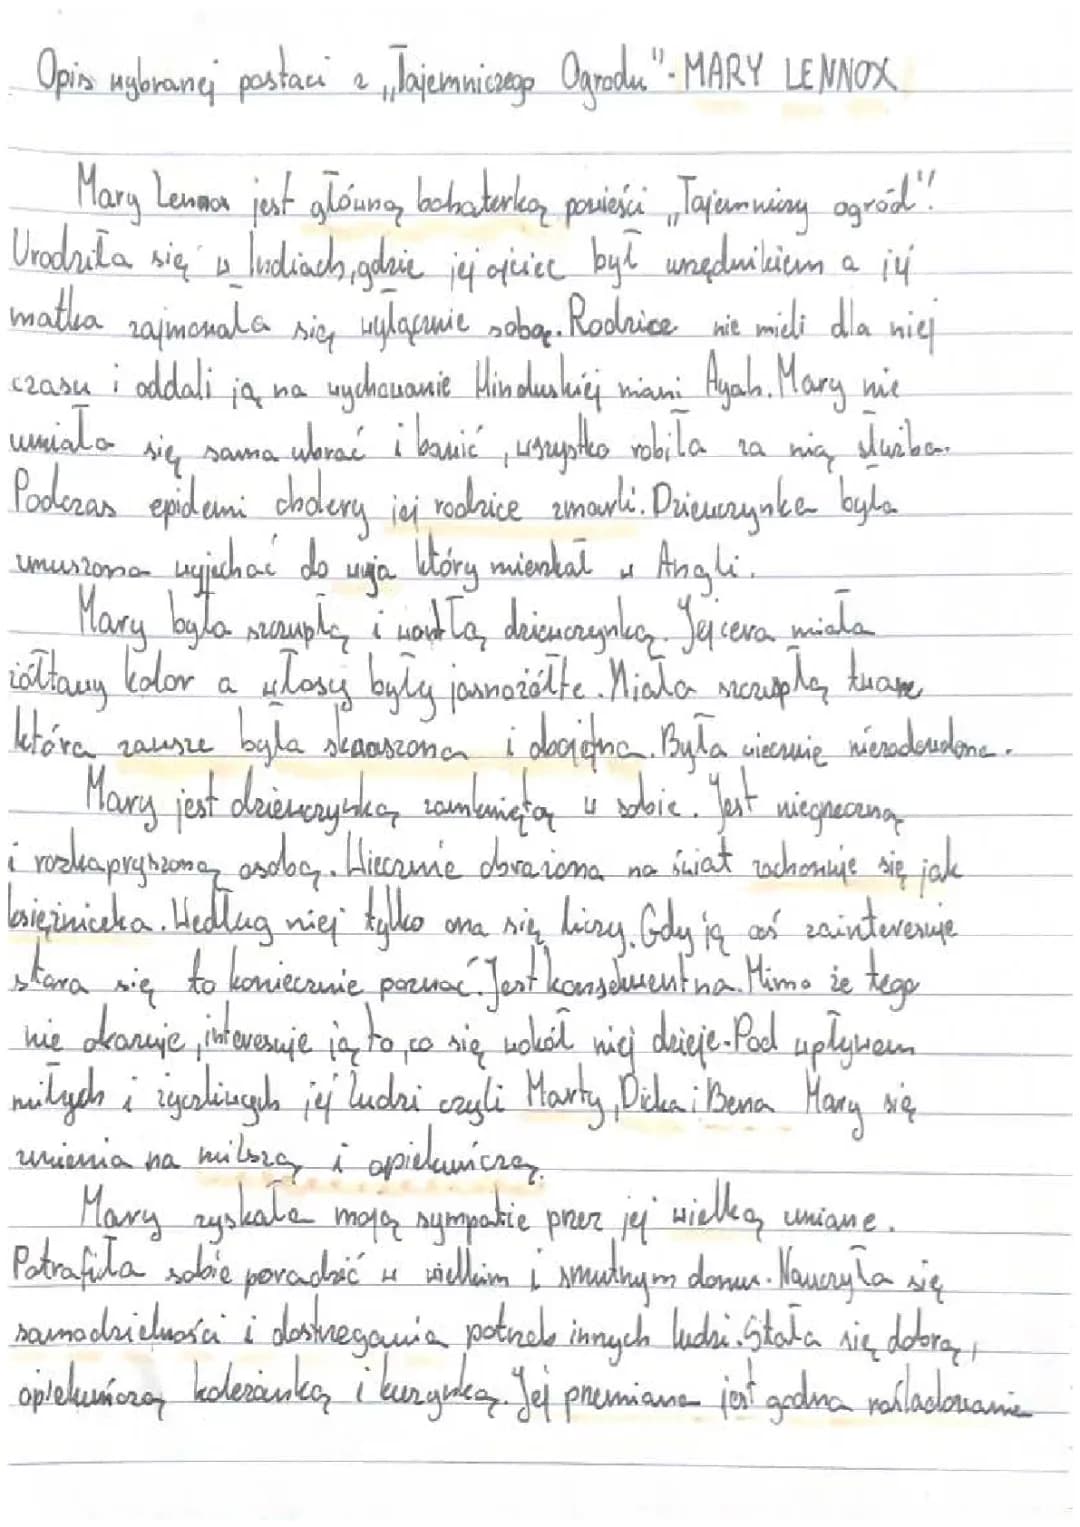 Opis wybranej postaci z „Tajemniczego Ogrodu"- MARY LENNOX
Mary Lennox jest główną bohaterką powieści „Tajemniczy ogród".
Urodziła się w Indiach, gdzie jej ojciec był urzędnikiem a jej
matka zajmowała się wyłącznie sobą. Rodzice nie mieli dla niej
czasu i oddali ją na wychowanie Hinduskiej niani Ayah. Mary nie
umiała się sama ubrać i bawić, wszystko robiła za nią służba.
Podczas epidemi cholery jej rodzice zmarli. Dziewczynka była
zmuszona wyjechać do wuja który mieszkał w Angli.
Mary była szczupłą i wątłą dziewczynką. Jej cera miała
żółtawy kolor a włosy były jasnożółte. Miała szczupłą twarz,
która zawsze była skwaszona i obojętna. Była wiecznie niezadowolona.
Mary jest dziewczynką zamkniętą w sobie. Jest niegrzeczną
i rozkapryszoną osobą. Wiecznie obrażona na świat zachowuje się jak
księżniczka. Według niej tylko ona się liczy. Gdy ją coś zainteresuje
stara się to koniecznie poznać. Jest konsekwentna. Mimo że tego
nie okazuje, interesuje ją to, co się wokół niej dzieje. Pod wpływem
miłych i życzliwych jej ludzi czyli Marty, Dicka i Bena Mary się
zmienia na milszą i opiekuńczą.
Mary zyskała moją sympatie przez jej wielką zmianę.
Potrafiła sobie poradzić w wielkim i smutnym domu. Nauczyła się
samodzielności i dostrzegania potrzeb innych ludzi. Stała się dobrą,
opiekuńczą koleżanką i kuzynką. Jej przemiana jest godna naśladowania